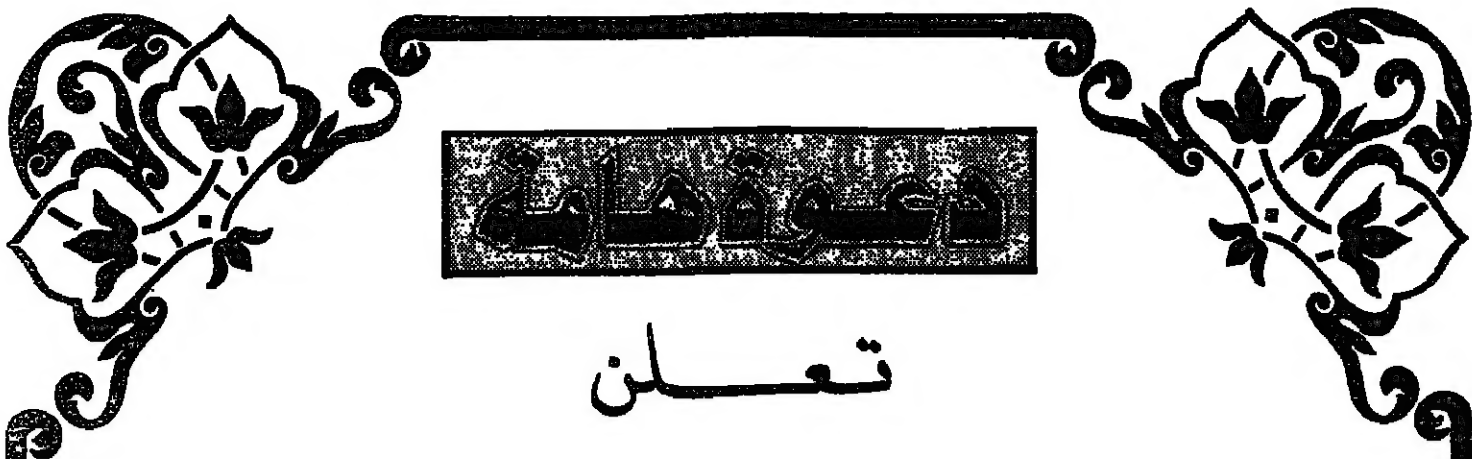 دعوة هامة
تعلن